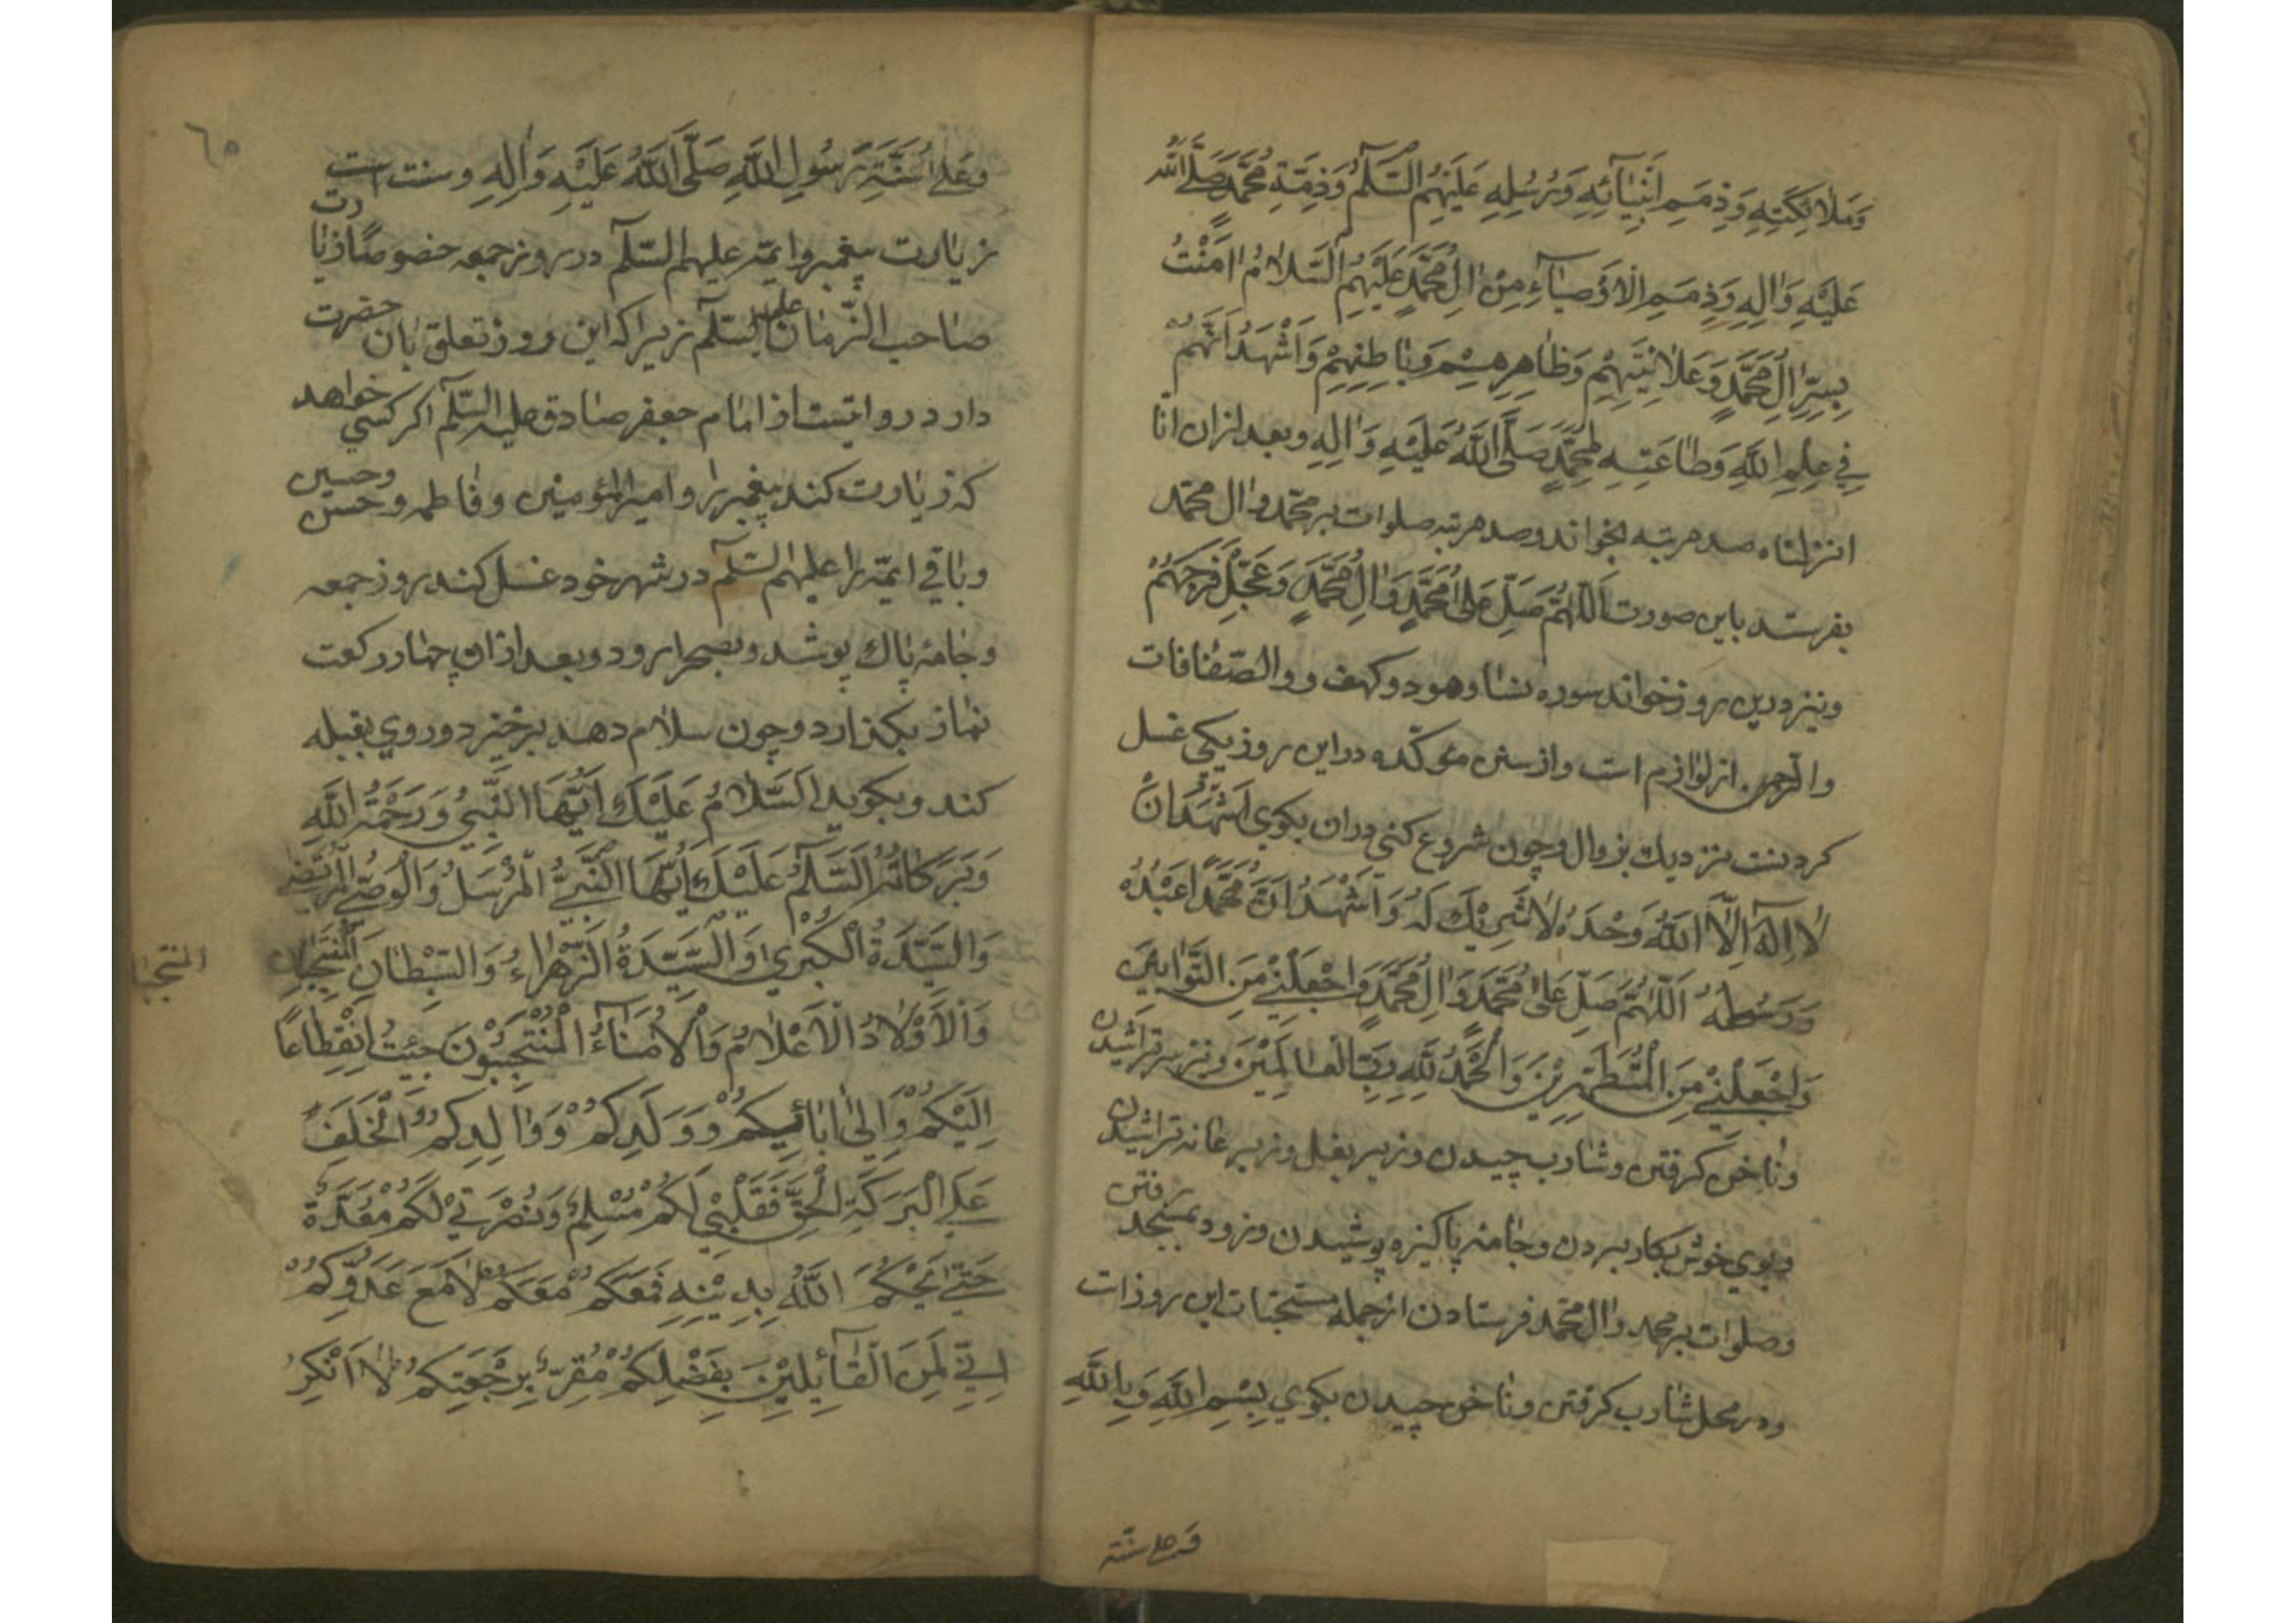 وَمَلَائِكَتِهِ وَذِمَمِ اَنْبِيَآئِهِ وَرُسُلِهِ عَلَيْهِمُ السَّلَمُ وَذِمَّةِ مُحَمَّدٍ صَلَّى اللهُ
عَلَيْهِ وَاٰلِهِ وَذِمَمِ الْاَوْصِيَآءِ مِنْ اٰلِ مُحَمَّدٍ عَلَيْهِمُ السَّلَامُ اٰمَنْتُ
بِسِرِّ اٰلِ مُحَمَّدٍ وَعَلَانِيَتِهِمْ وَظَاهِرِهِمْ وَبَاطِنِهِمْ وَاَشْهَدُ اَنَّهُمْ
فِي عِلْمِ اللّٰهِ وَطَاعَتِهِ لِمُحَمَّدٍ صَلَّى اللّٰهُ عَلَيْهِ وَاٰلِهِ وبعد ازان انّا
انزلناه صد مرتبه بخواند وصد مرتبه صلوات بر محمّد وال محمّد
بفرستد باين صورت اَللّٰهُمَّ صَلِّ عَلٰى مُحَمَّدٍ وَاٰلِ مُحَمَّدٍ وَعَجِّلْ فَرَجَهُمْ
ونيز درين روز خواند سوره نسا وهود وكهف و والصّافات
والرحمن از لوازم است واز سنن مؤكّده دراين روز يكي غسل
كردنست نزديك بزوال وچون شروع كني دران بكوي اَشْهَدُ اَنْ
لَا اِلٰهَ اِلَّا اللّٰهُ وَحْدَهُ لَا شَرِيْكَ لَهُ وَاَشْهَدُ اَنَّ مُحَمَّدًا عَبْدُهُ
وَرَسُولُهُ اَللّٰهُمَّ صَلِّ عَلٰى مُحَمَّدٍ وَاٰلِ مُحَمَّدٍ وَاجْعَلْنِيْ مِنَ التَّوَّابِيْنَ
وَاجْعَلْنِيْ مِنَ الْمُتَطَهِّرِيْنَ وَالْحَمْدُ لِلّٰهِ رَبِّ الْعَالَمِيْنَ ونيز سرتراشيدن
وناخن كرفتن وشارب چيدن وزير بغل وزير عانه تراشيدن
وبوي خوش بكار بردن وجامه پاكيزه پوشيدن وزود بمسجد رفتن
وصلوات بر محمد وال محمّد فرستادن از جمله مستحبات اين روز است
ودر محل شارب كرفتن وناخن چيدن بكوي بِسْمِ اللّٰهِ وَبِاللّٰهِ
وعلى سنّة
٦٥
وَعَلٰى سُنَّةِ رَسُولِ اللّٰهِ صَلَّى اللّٰهُ عَلَيْهِ وَاٰلِهِ وسنت است
زيارت پيغمبر وايمّه عليهم السّلم در روز جمعه خصوصًا زيارت
صاحب الزّمان عليه السّلم زيرا كه اين روز تعلق بان حضرت
دارد روايتست از امام جعفر صادق عليه السّلم اكر كسي خواهد
كه زيارت كند پيغمبر را وامير المؤمنين وفاطمه وحسن وحسين
وباقي ايمّه را عليهم السّلم در شهر خود غسل كند روز جمعه
وجامهٔ پاك پوشد وبصحرا رود وبعد ازان چهار ركعت
نماز بكذارد وچون سلام دهد برخيزد وروي بقبله
كند وبكويد اَلسَّلَامُ عَلَيْكَ اَيُّهَا النَّبِيُّ وَرَحْمَةُ اللّٰهِ
وَبَرَكَاتُهُ اَلسَّلَمُ عَلَيْكَ اَيُّهَا النَّبِيُّ الْمُرْسَلُ وَالْوَصِيُّ الْمُرْتَضٰى
وَالسَّيِّدَةُ الْكُبْرٰى وَالسَّيِّدَةُ الزَّهْرَاءُ وَالسِّبْطَانِ الْمُنْتَجَبَانِ
المنتجبا
وَالْاَوْلَادُ الْاَعْلَامُ وَالْاُمَنَآءُ الْمُنْتَجَبُوْنَ جِئْتُ اِنْقِطَاعًا
اِلَيْكُمْ وَاِلٰى اٰبَائِكُمْ وَوَلَدِكُمْ وَوَالِدِكُمُ الْخَلَفِ
عَلٰى الْبَرَكَةِ الْحَقِّ فَقَلْبِيْ لَكُمْ مُسْلِمٌ وَنُصْرَتِيْ لَكُمْ مُعَدَّةٌ
حَتّٰى يَحْكُمَ اللّٰهُ بِدِيْنِهِ فَمَعَكُمْ مَعَكُمْ لَا مَعَ عَدُوِّكُمْ
اِنِّيْ لَمِنَ الْقَآئِلِيْنَ بِفَضْلِكُمْ مُقِرٌّ بِرَجْعَتِكُمْ لَا اُنْكِرُ